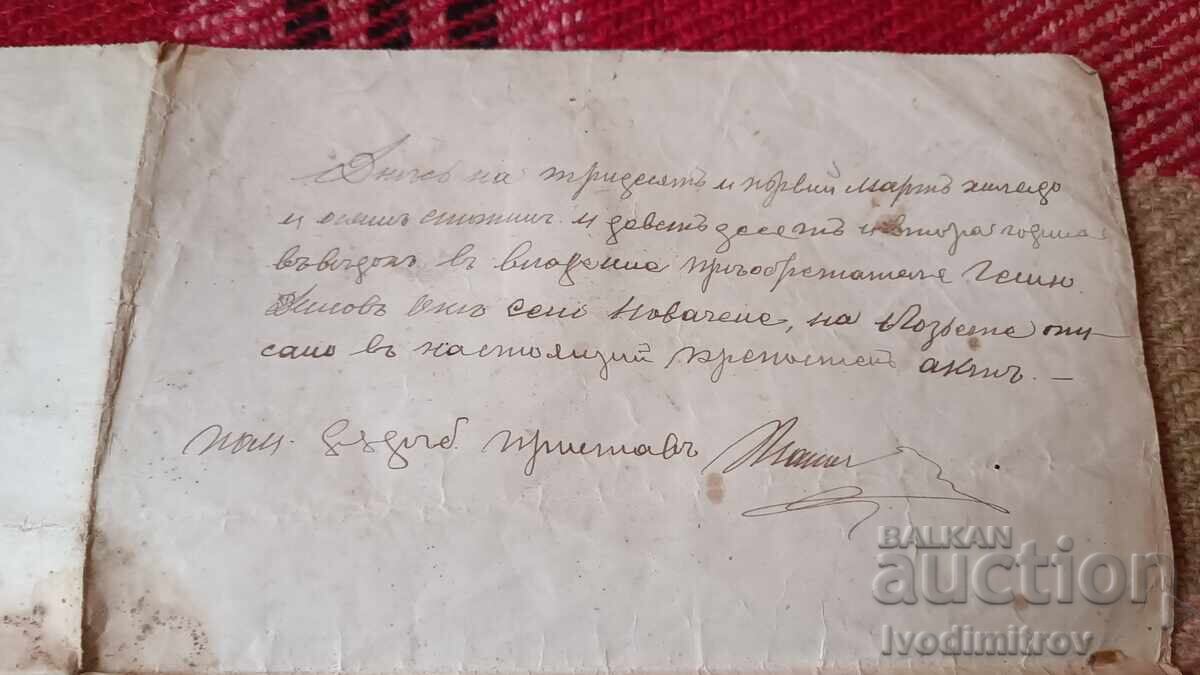 Днесъ на тридесятъ и първий Мартъ хилядо
и осемъ стотинъ и деветьдесетъ и втора година
въведохъ въ владение приобретателя Гешю
отъ село Новачене, на Лозьето опи
сано въ настоящий крепостенъ актъ. —
пом. съдеб. приставъ
BALKAN
auction
Ivodimitrov